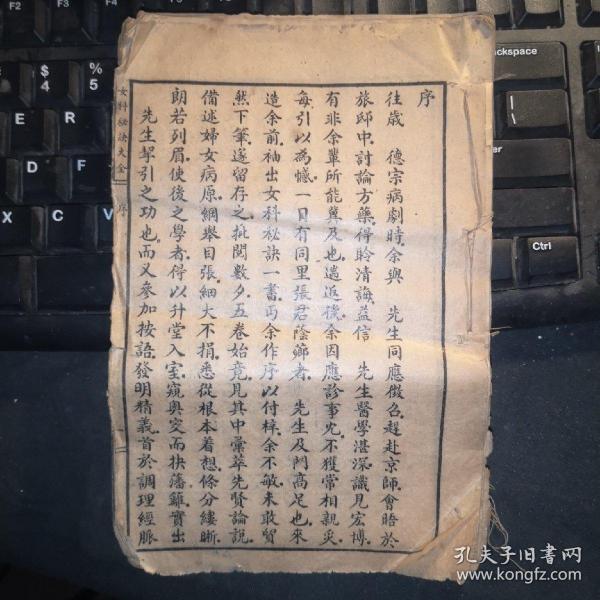 序
往歲　德宗病劇時余與　先生同應徵召趕赴京師會晤於
旅邸中討論方藥得聆清誨益信　先生醫學湛深識見宏博
有非余輩所能冀及也遄返後余因應診事冗不獲常相親炙
每引以為憾一日有同里張君蔭薌者　先生及門高足也來
造余前袖出女科秘訣一書丐余作序以付梓余不敏未敢貿
然下筆遂留存之批閱數夕五卷始竟見其中彙萃先賢論說
備述婦女病原綱舉目張細大不捐悉從根本着想條分縷晰
朗若列眉使後之學者得以升堂入室窺奧突而抉藩籬實出
先生挈引之功也而又參加按語發明精義首於調理經脈
女科秘訣大全
序
F2
F3
F4
F5
$
4
%
5
E
R
D
F
C
ackspace
Shift
Ctrl
孔夫子旧书网
www.kongfz.com